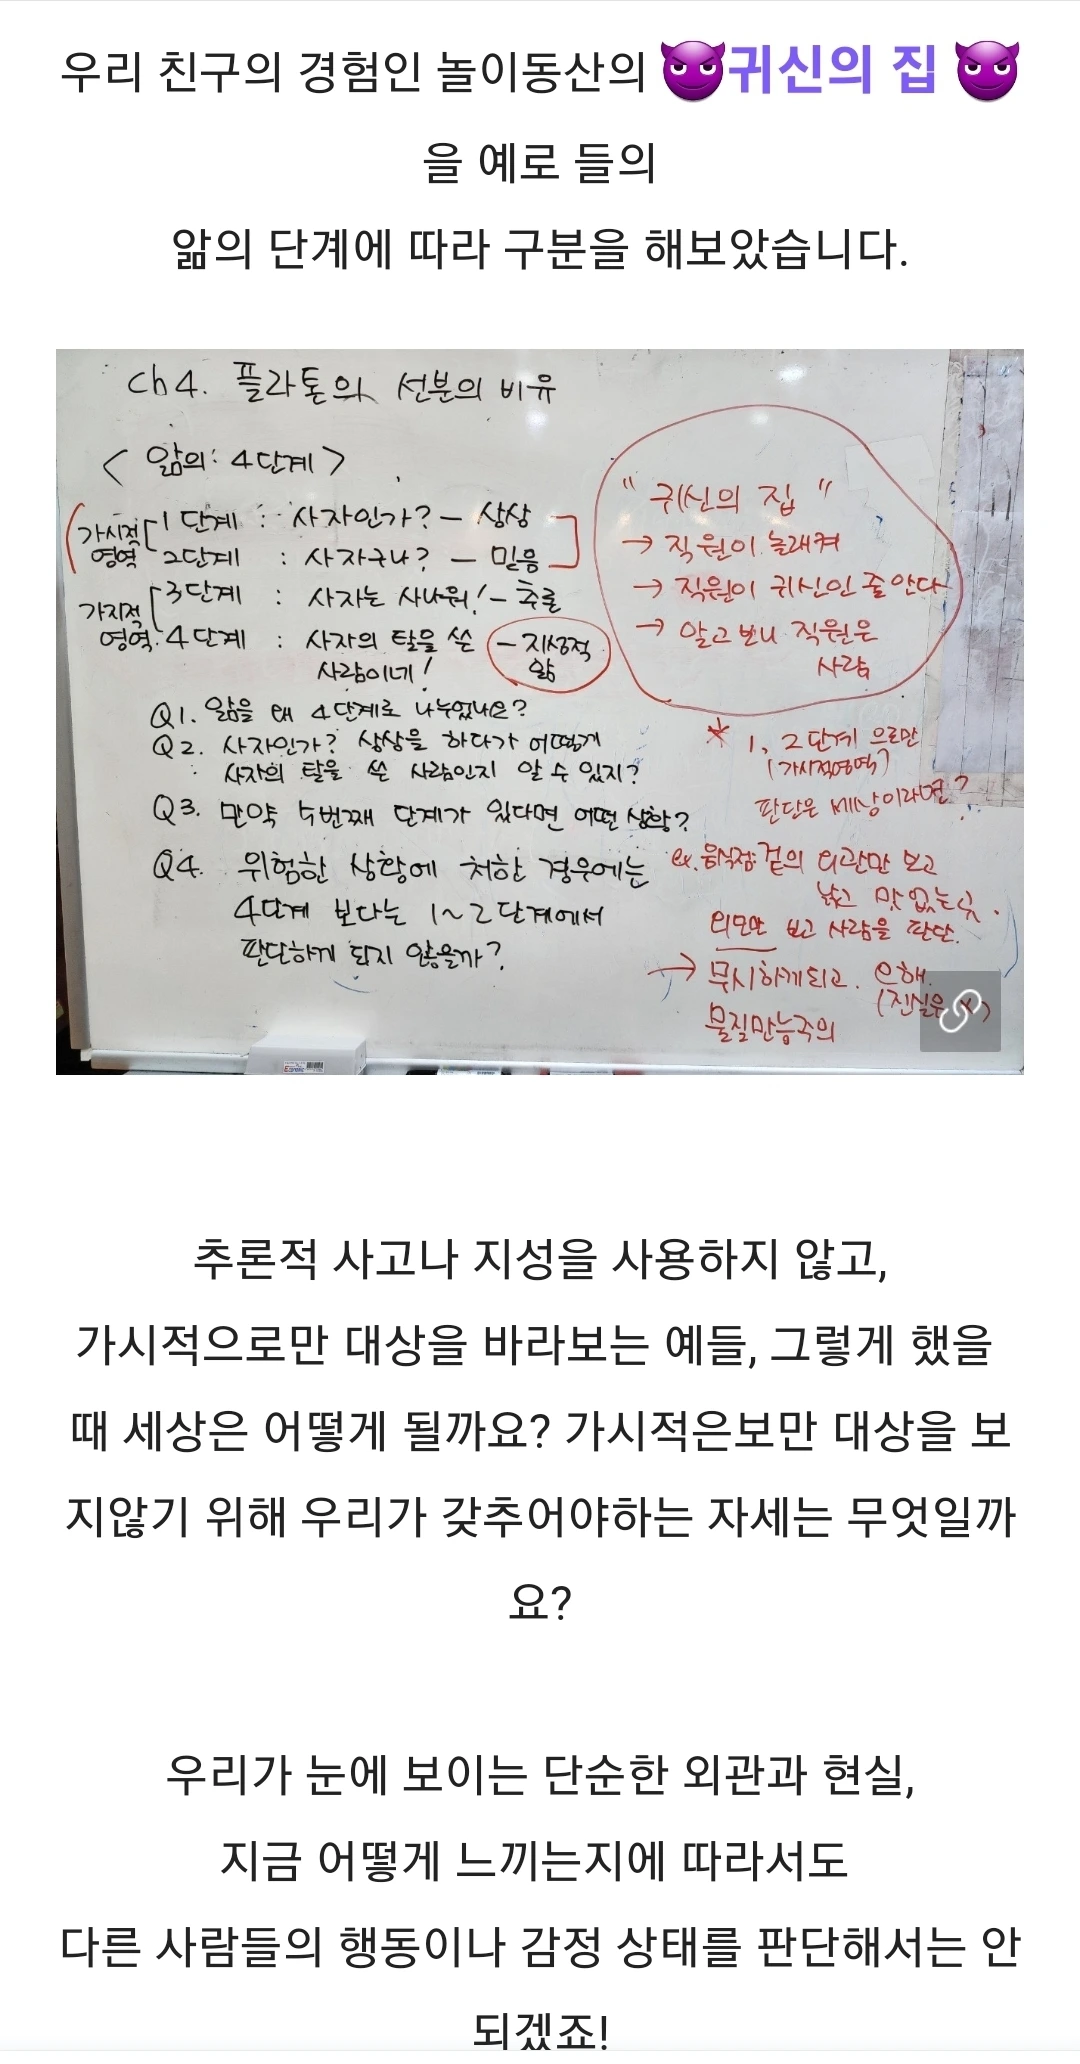 우리 친구의 경험인 놀이동산의 😈귀신의 집 😈
을 예로 들의
앎의 단계에 따라 구분을 해보았습니다.
Ch4. 플라톤의 선분의 비유
< 앎의: 4단계 >
가시적 영역 1단계 : 사자인가? - 상상
2단계 : 사자구나? - 믿음
가지적 영역 3단계 : 사자는 사나워! - 추론
4단계 : 사자의 탈을 쓴 사람이네! - 지성적 앎
Q1. 앎을 왜 4단계로 나누었나요?
Q2. 사자인가? 상상을 하다가 어떻게
사자의 탈을 쓴 사람인지 알 수 있지?
Q3. 만약 5번째 단계가 있다면 어떤 상황?
Q4. 위험한 상황에 처한 경우에는
4단계 보다는 1~2단계에서
판단하게 되지 않을까?
"귀신의 집"
→ 직원이 놀래켜
→ 직원이 귀신인 줄 안다
→ 알고 보니 직원은
사람
* 1, 2단계 으로만
(가시적영역)
판단은 세상이라면?
ex. 음식점 겉의 외관만 보고
낡고 맛없는
외모만 보고 사람을 판단.
→ 무시하게되고. 오해.
물질만능주의
추론적 사고나 지성을 사용하지 않고,
가시적으로만 대상을 바라보는 예들, 그렇게 했을
때 세상은 어떻게 될까요? 가시적은보만 대상을 보
지않기 위해 우리가 갖추어야하는 자세는 무엇일까
요?
우리가 눈에 보이는 단순한 외관과 현실,
지금 어떻게 느끼는지에 따라서도
다른 사람들의 행동이나 감정 상태를 판단해서는 안
되겠죠!